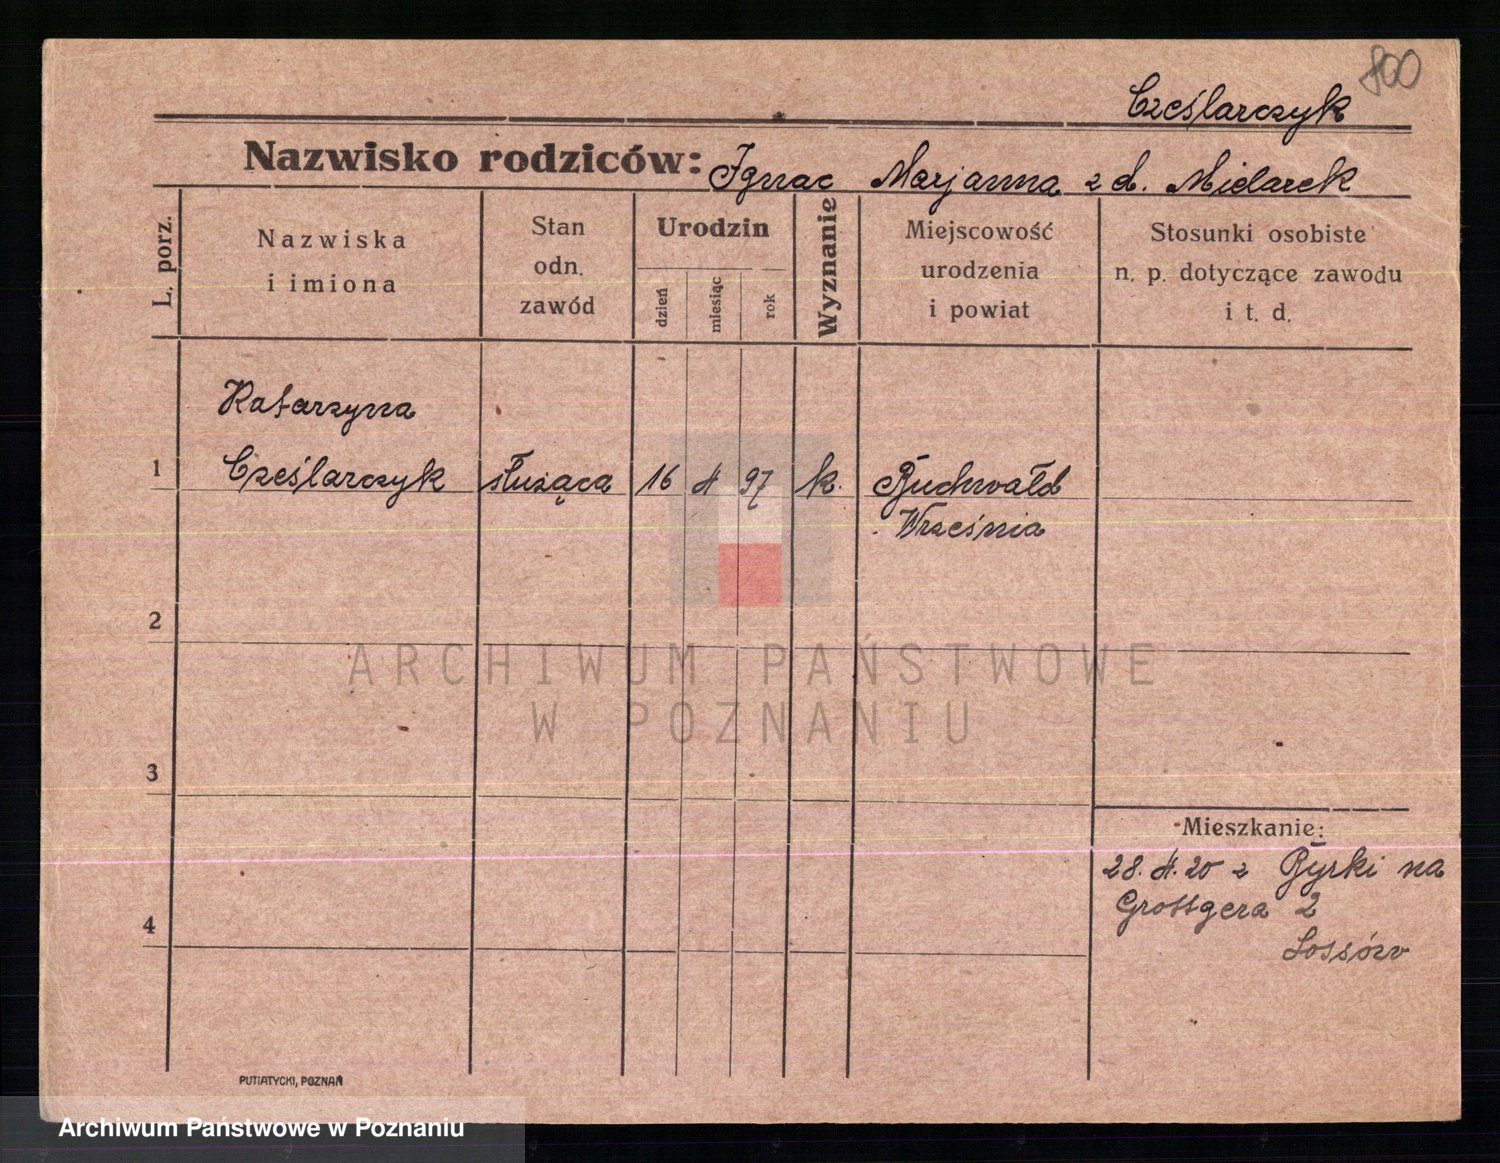 800
Cześlarczyk
Nazwisko rodziców: Ignac Marjanna z d. Mielarek
L. porz.
Nazwiska
i imiona
Stan
odn.
zawód
Urodzin
dzień
miesiąc
rok
Wyznanie
Miejscowość
urodzenia
i powiat
Stosunki osobiste
n. p. dotyczące zawodu
i t. d.
Katarzyna
1 Cześlarczyk służąca 16 4 97 k. Buchwałd
Września
2
ARCHIWUM PAŃSTWOWE
W POZNANIU
3
Mieszkanie:
28. 4. 20 z Byrki na
Grottgera 2
4
Lossów
PUTIATYCKI, POZNAŃ
Archiwum Państwowe w Poznaniu